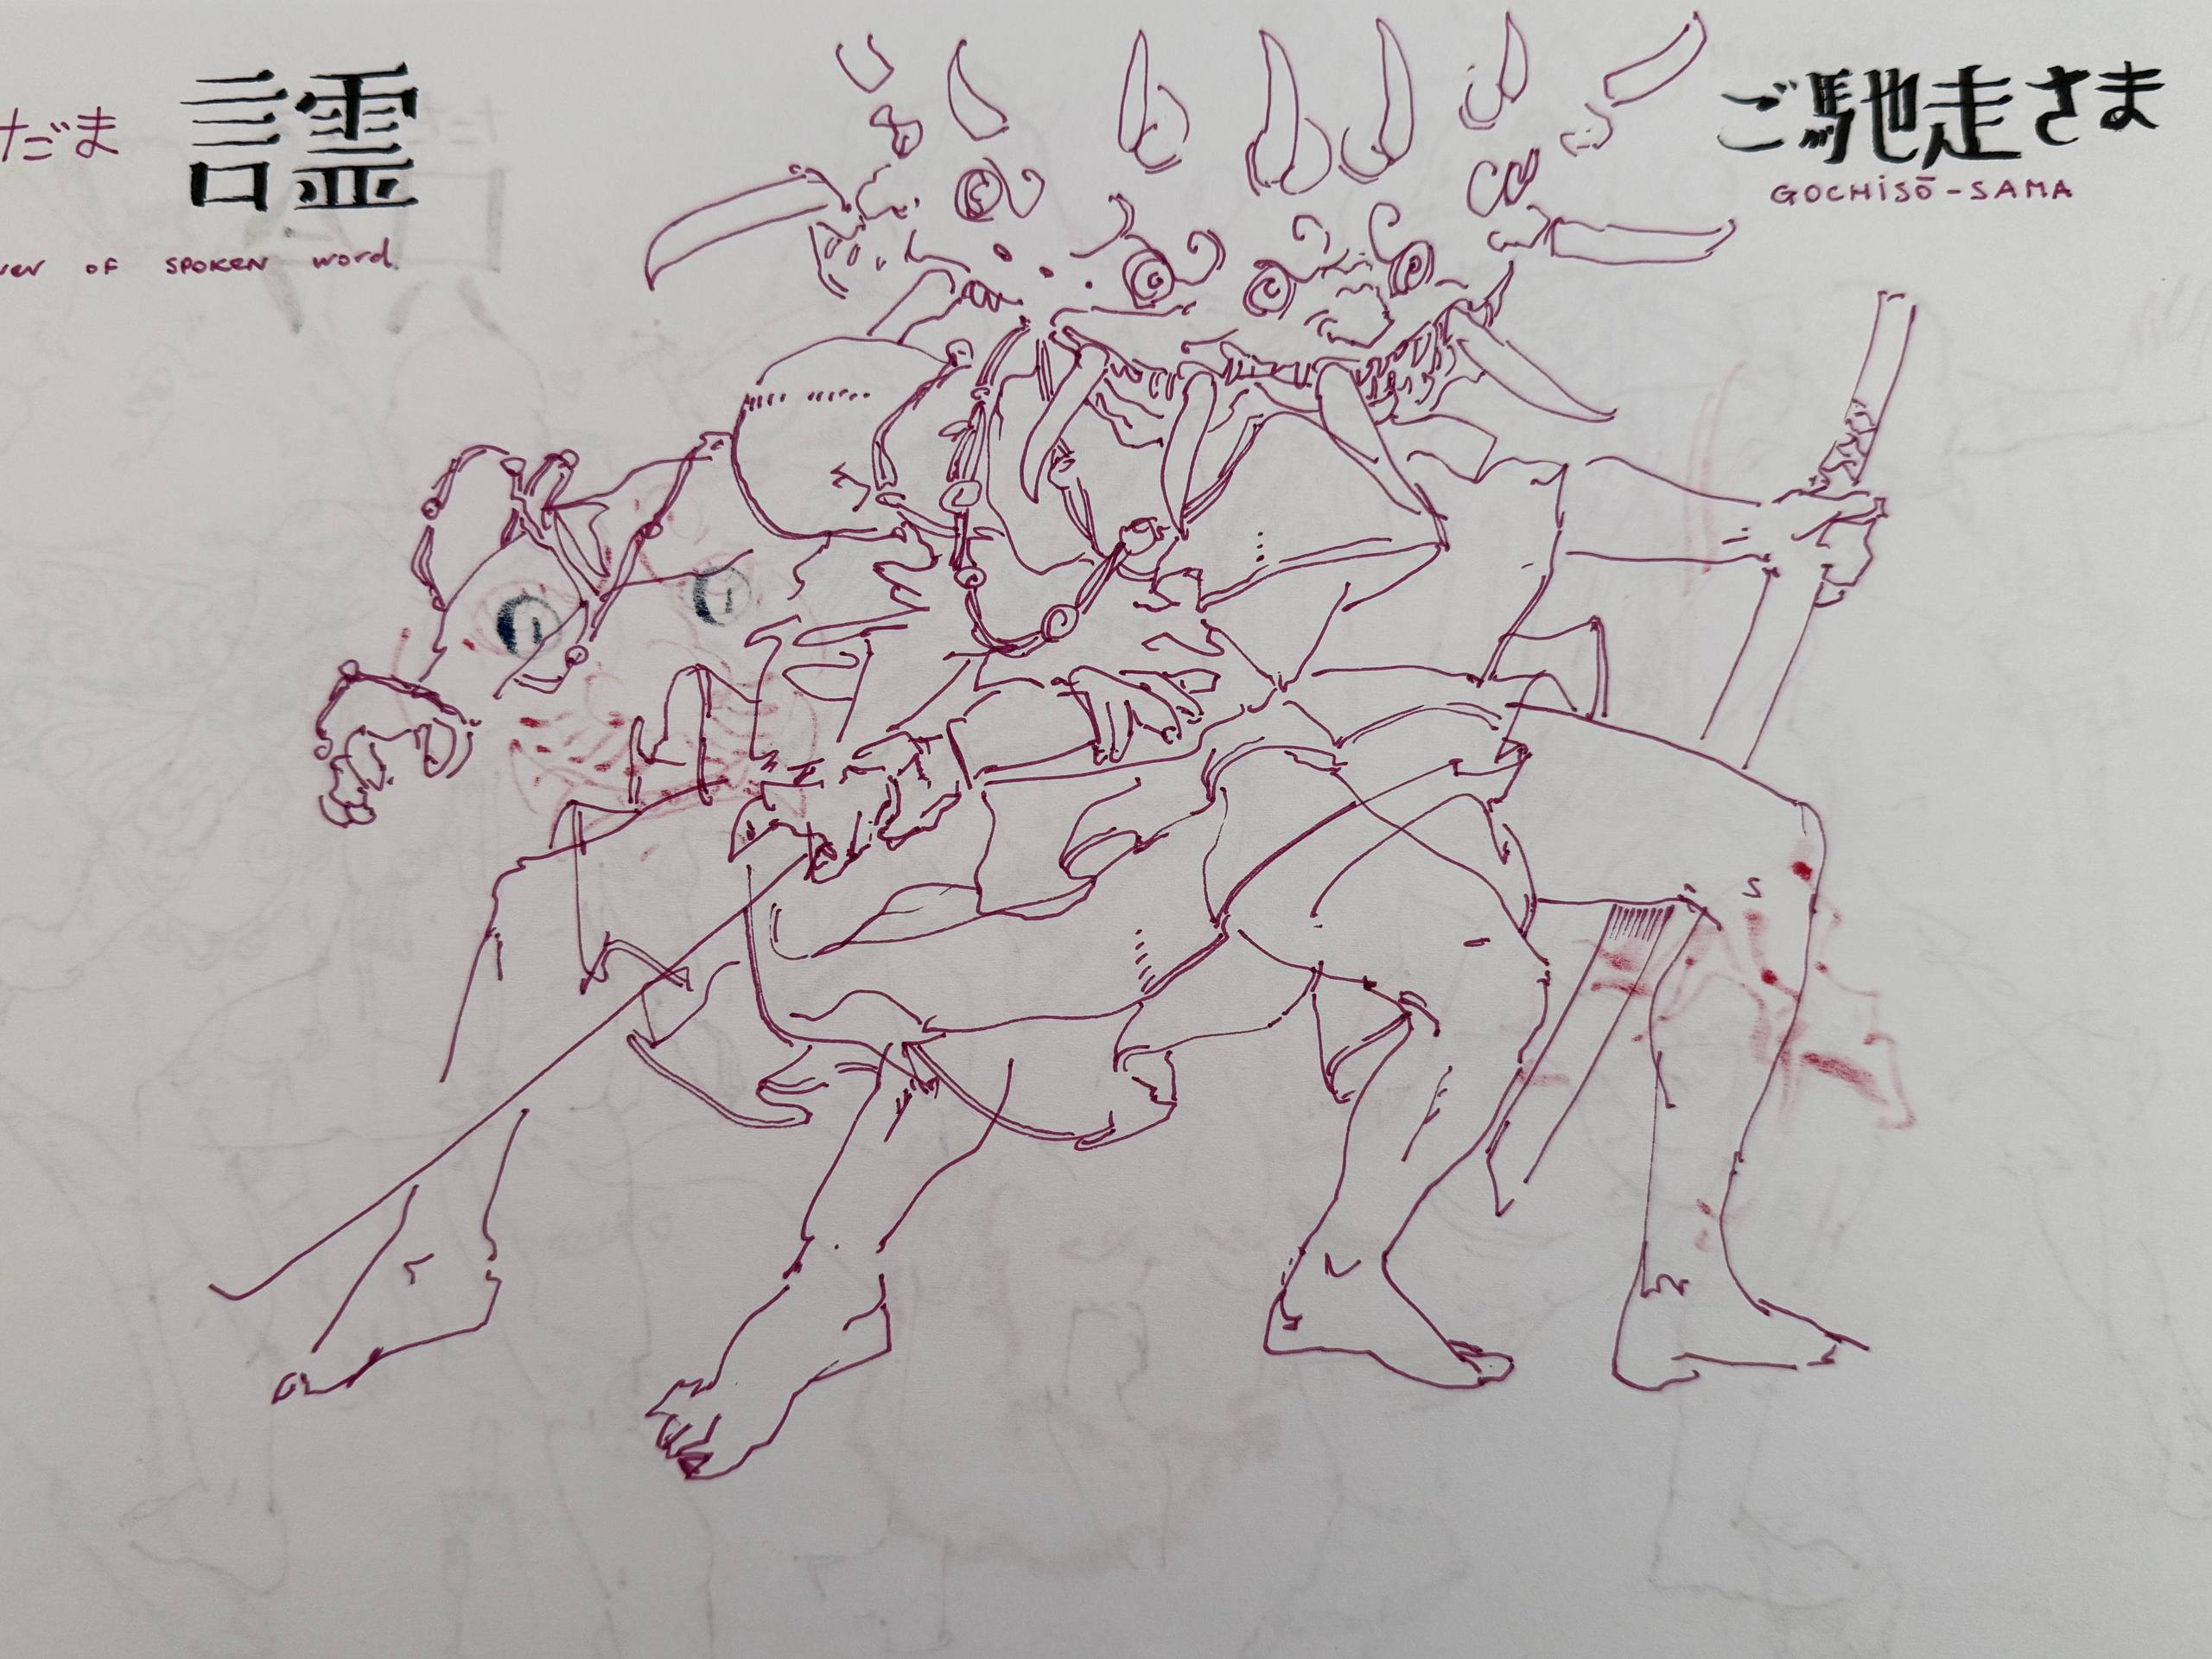 だま
言霊
of SPOKEN word
ご馳走さま
GOCHISŌ-SAMA